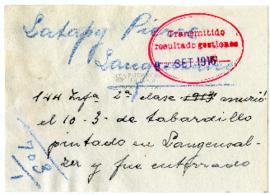 Latapy Pierre
Langensalza
Transmitido
resultado gestiones
SET. 1916
144 Infª 2ª clase 1917 murió
el 10-3- de tabardillo
pintado en Langensal-
za y fue enterrado